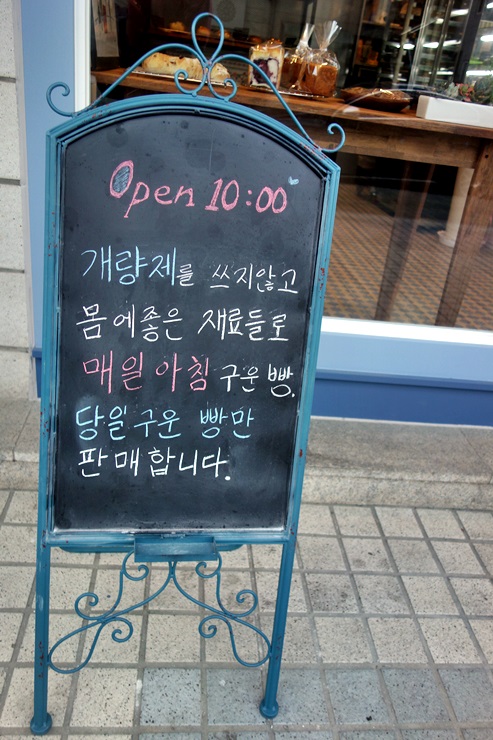 Open 10:00
개량제를 쓰지않고
몸에좋은 재료들로
매일 아침 구운 빵.
당일 구운 빵만
판매합니다.